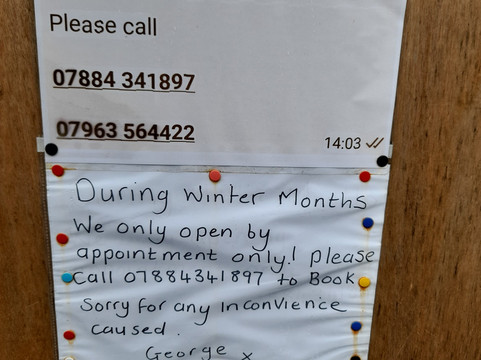 Please call
07884 341897
07963 564422
14:03
During Winter Months
We only open by
appointment only! please
Call 07884341897 to Book
Sorry for any Inconvience
caused.
George x